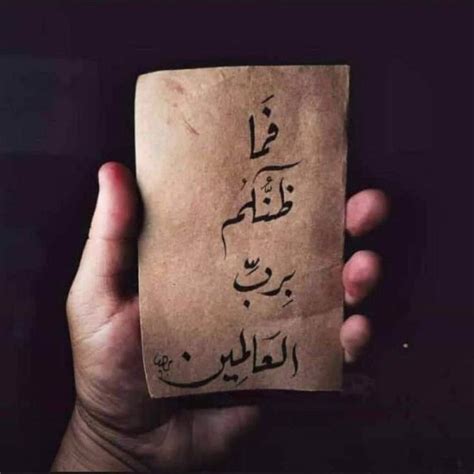 فَمَا
ظَنُّكُمْ
بِرَبِّ
العَالَمِين